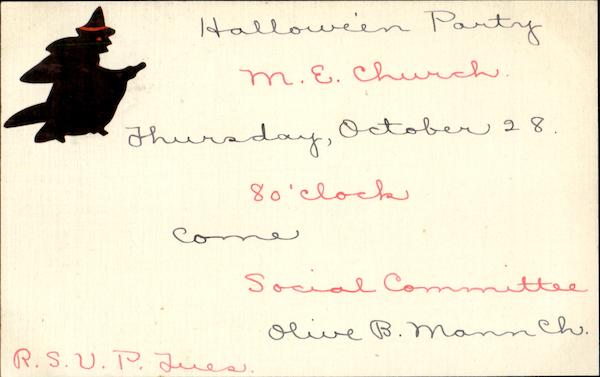 Hallowe'en Party
M. E. Church.
Thursday, October 28.
8 o'clock
Come
Social Committee
Olive B. Mann Ch.
R. S. V. P. Tues.